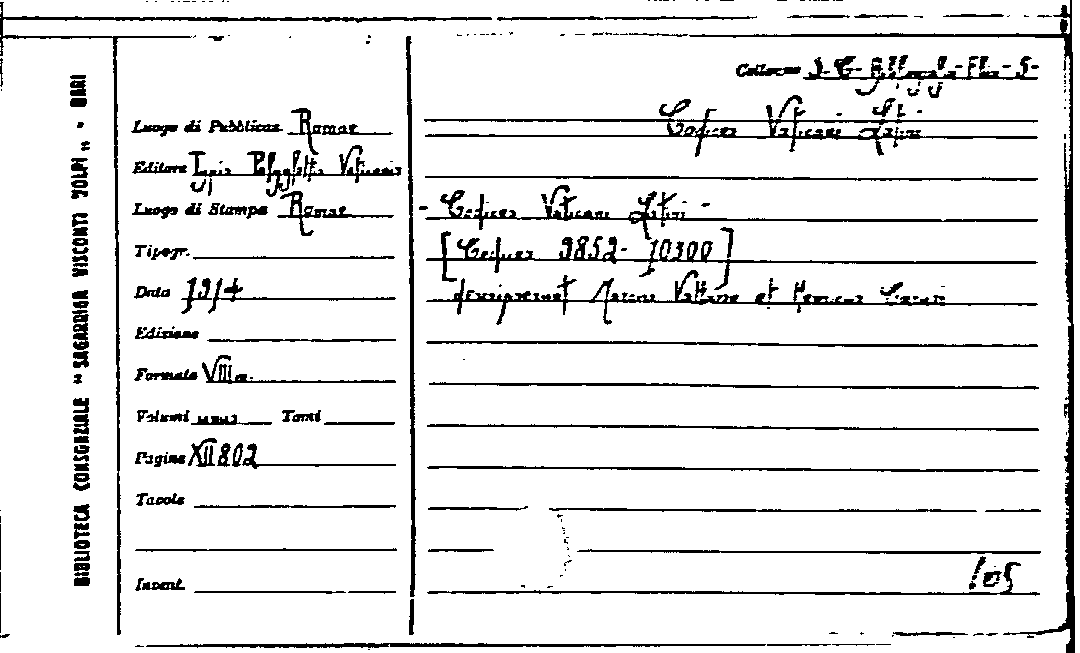 BIBLIOTECA CONSORZIALE "SAGARRIGA VISCONTI VOLPI" - BARI
Collocaz.
Codices Vaticani Latini
Luogo di Pubblicaz. Romae
Editore Typis Polyglottis Vaticanis
Luogo di Stampa Romae
Tipogr.
Data 1914
Edizione
Formato VIII°.
Volumi unus Tomi
Pagine XII 802
Tavole
Invent.
- Codices Vaticani Latini -
[Codices 9852- 10300]
Marcus Vattasso et Henricus Carusi
105